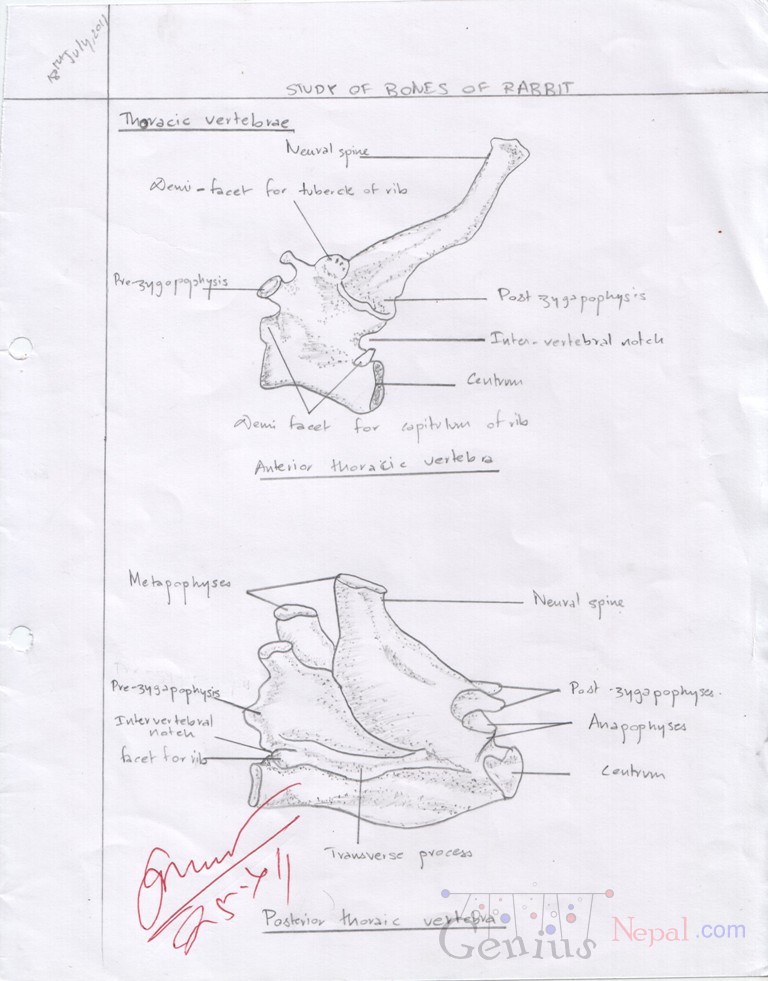 July, 2011
STUDY OF BONES OF RABBIT
Thoracic vertebrae
Neural spine
Demi-facet for tubercle of rib
Pre-zygopophysis
Post zygapophysis
Inter-vertebral notch
Centrum
Demi facet for capitulum of rib
Anterior thoracic vertebra
Metapophyses
Neural spine
Pre-zygapophysis
Post-zygapophyses.
Intervertebral
notch
Anapophyses
facet for rib
Centrum
Transverse process
Posterior thoraic vertebra
Genius Nepal.com